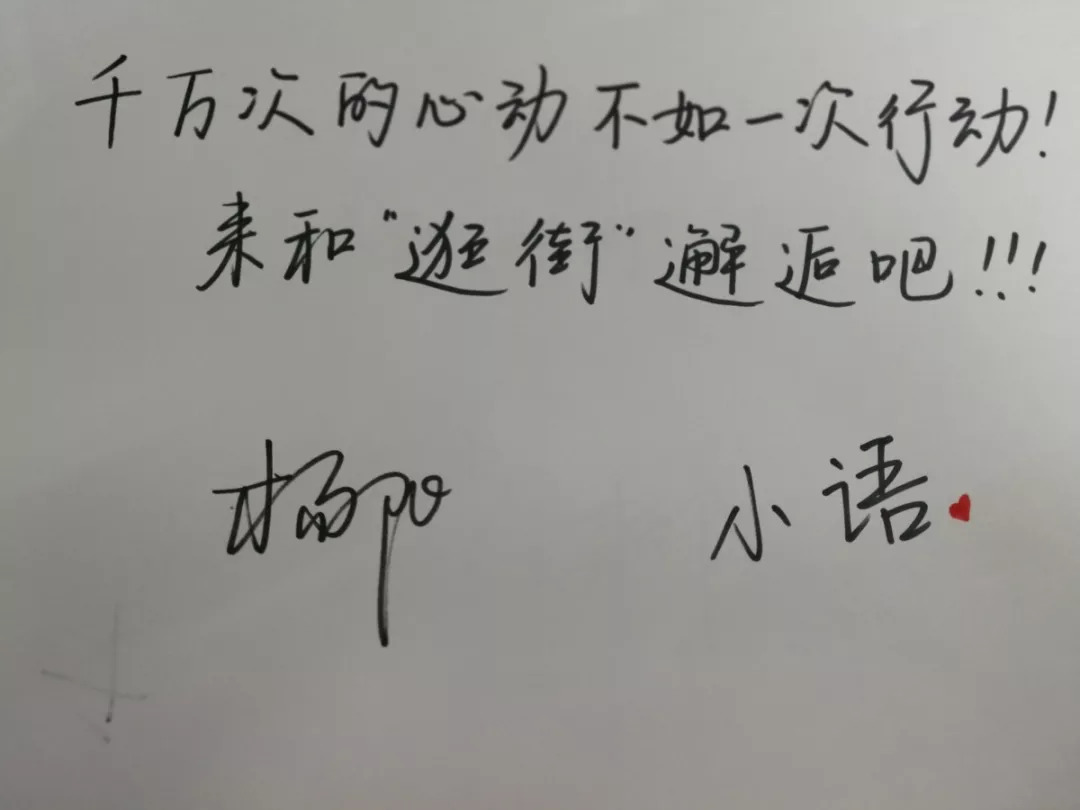 千万次的心动不如一次行动!
来和“逛街”邂逅吧!!!
小语